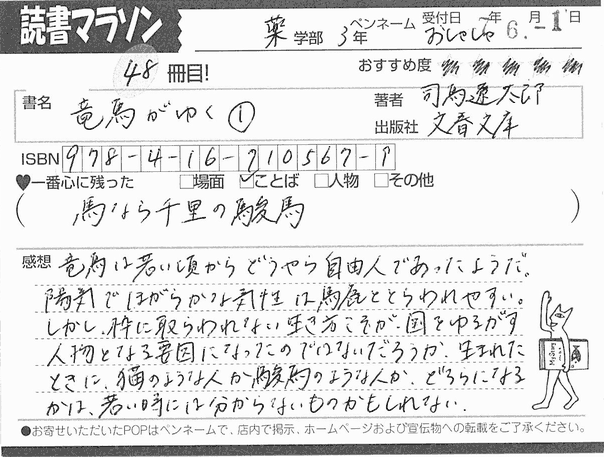 読書マラソン 薬学部 3年 ペンネーム おしゃしゃ 受付日 7年 6月-1日
48冊目! おすすめ度
書名 竜馬がゆく① 著者 司馬遼太郎
出版社 文春文庫
ISBN 978-4-16-710567-9
♥一番心に残った □場面 ☑ことば □人物 □その他
(馬なら千里の駿馬)
感想 竜馬は若い頃からどうやら自由人であったようだ。
陽気でほがらかな気性は馬鹿ととらわれやすい。
しかし、枠に取らわれない生き方こそが、国をゆるがす
人物となる要因になったのではないだろうか。生まれた
ときに、猫のような人か駿馬のような人か、どちらになる
かは、若い時には分からないものかもしれない。
●お寄せいただいたPOPはペンネームで、店内で掲示、ホームページおよび宣伝物への転載をご了承ください。